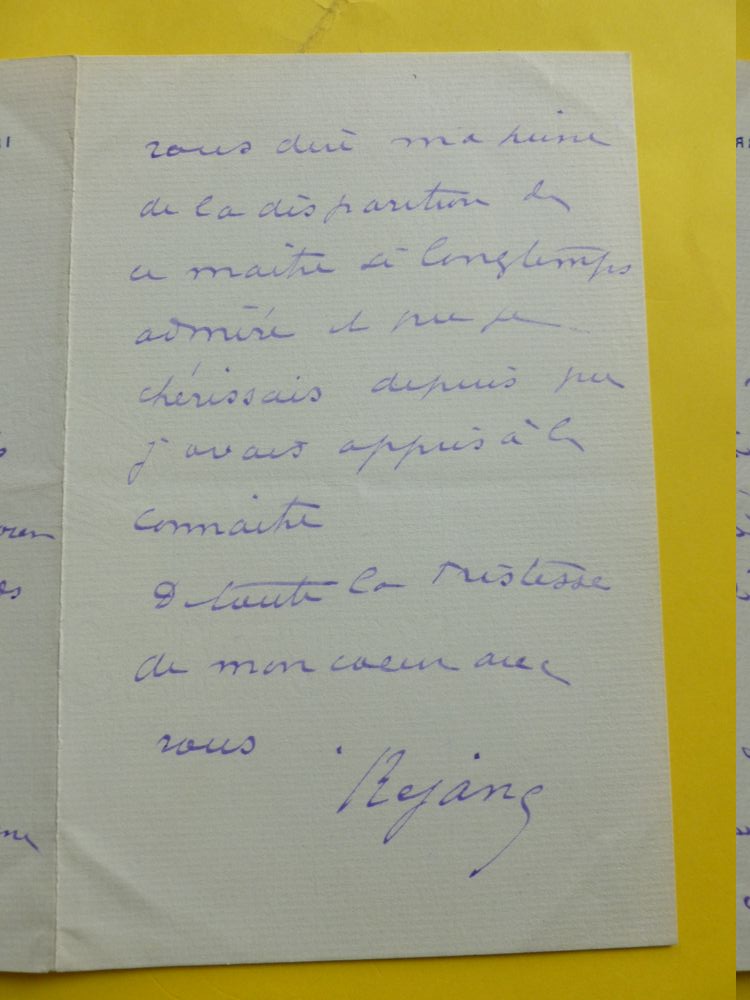 vous dire ma peine
de la disparition de
ce maître si longtemps
admiré et que je
chérissais depuis que
j'avais appris à le
connaître
De toute la tristesse
de mon coeur avec
vous
Rejane